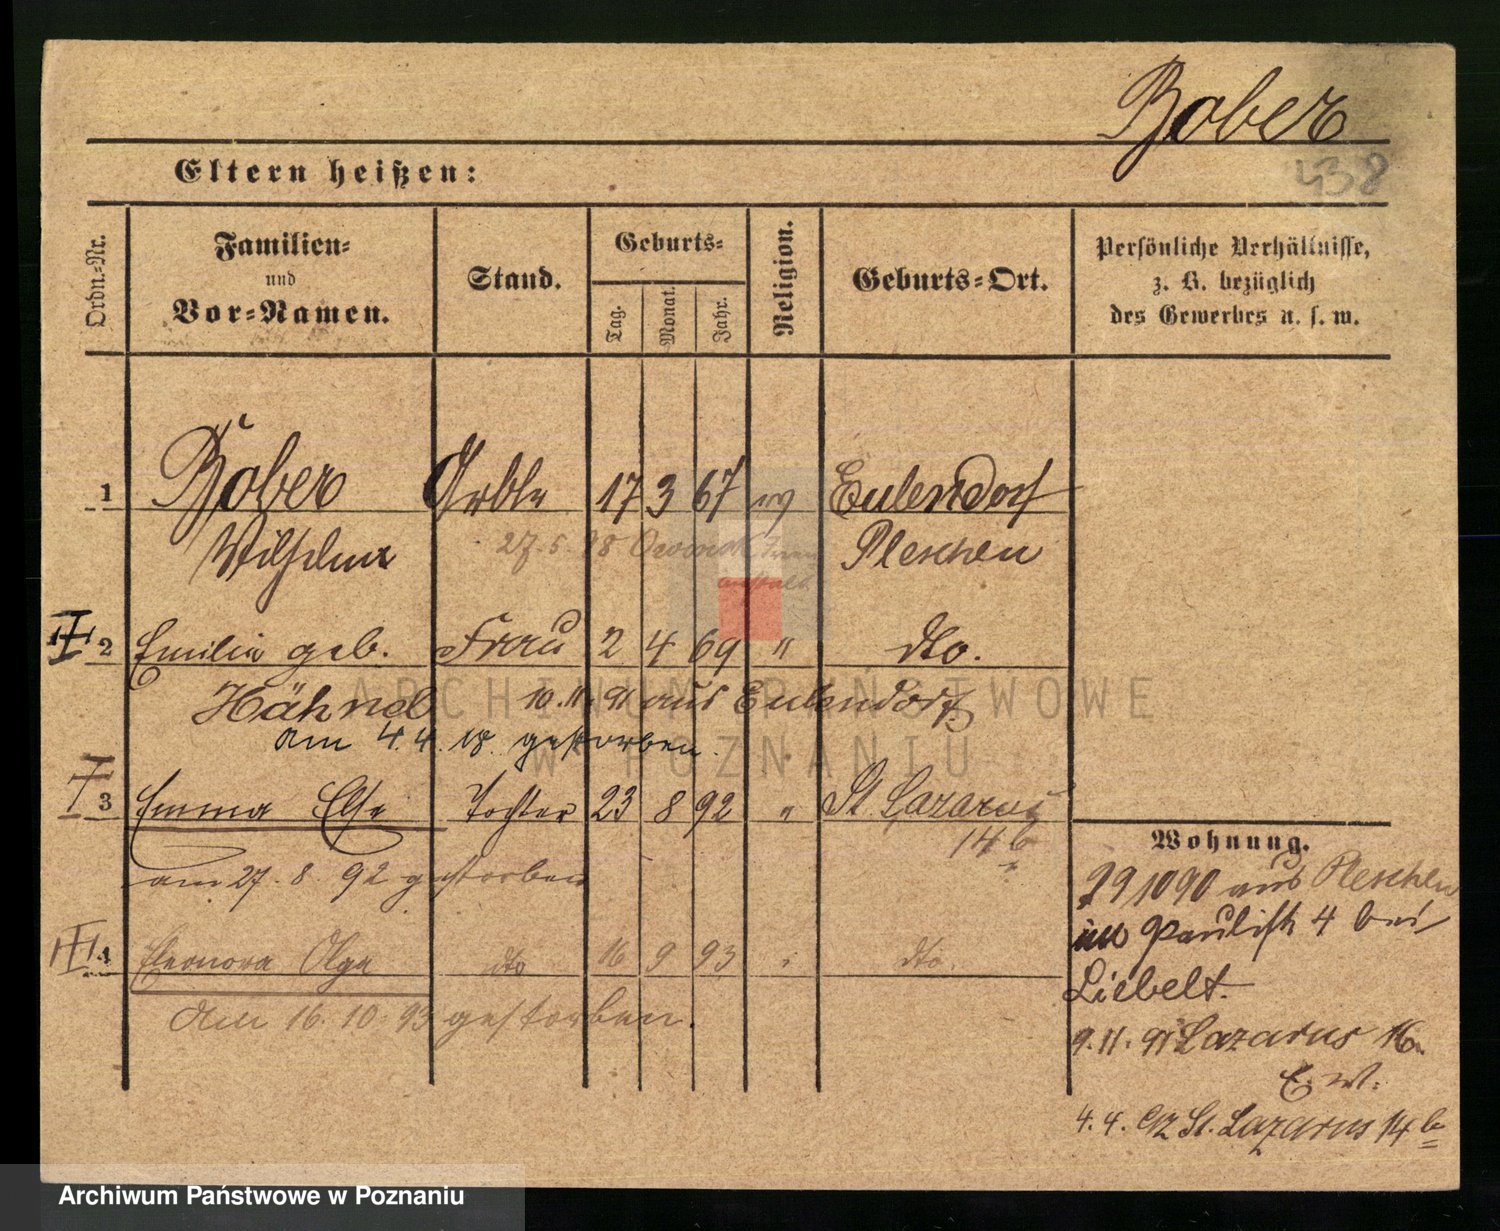 Bober
438
Eltern heißen:
Ordn.-Nr.
Familien-
und
Vor-Namen.
Stand.
Geburts-
Tag.
Monat.
Jahr.
Religion.
Geburts-Ort.
Persönliche Verhältnisse,
z. B. bezüglich
des Gewerbes u. s. w.
1 Bober Arbtr 17 3 67 Eulendorf
Wilhelm Pleschen
27. 5. 18 Owinsk
anstalt
2 Emilie geb. Frau 2 4 69 " dto.
Hähnel 10. 11. 91 aus Eulendorf
am 4. 4. 18. gestorben.
3 Emma Else Tochter 23 8 92 " St Lazarus
14 b
am 27. 8. 92 gestorben
4 Eleonora Olga dto 16 9 93 " dto.
Am 16. 10. 93 gestorben.
Wohnung.
29 10 90 aus Pleschen
Paulikh 4 bei
Liebelt.
9. 11. 91 Lazarus 16
E. W.
4. 4. 92 St. Lazarus 14 b
ARCHIWUM PAŃSTWOWE
W POZNANIU
Archiwum Państwowe w Poznaniu